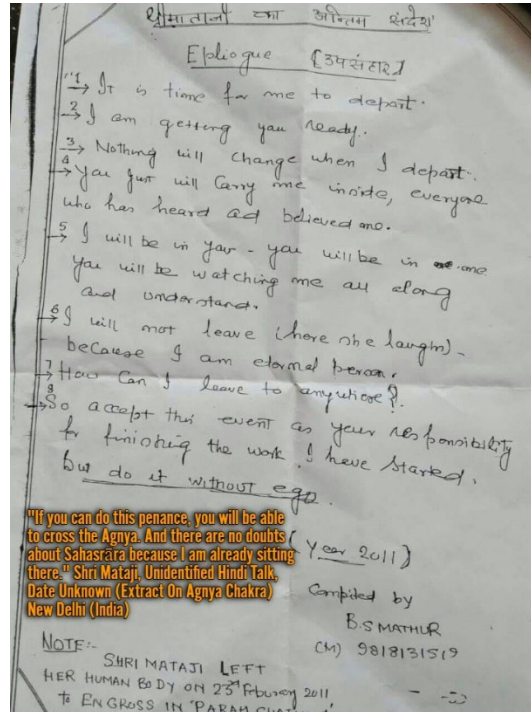 श्रीमाताजी का अन्तिम संदेश
Epliogue (उपसंहार)
"1 → It is time for me to depart.
2 → I am getting you ready.
3 → Nothing will change when I depart.
4 → You just will carry me inside, everyone
who has heard ad believed me.
5 → I will be in you - you will be in me
you will be watching me all along
and understand.
6 → I will not leave (here she laughs) -
because I am eternal person.
7 → How can I leave to anywhere?
8 → So accept this event as your responsibility
for finishing the work I have started.
but do it without ego.
(Year 2011)
"If you can do this penance, you will be able
to cross the Agnya. And there are no doubts
about Sahasrāra because I am already sitting
there." Shri Mataji, Unidentified Hindi Talk,
Date Unknown (Extract On Agnya Chakra)
New Delhi (India)
Compiled by
B.S MATHUR
(M) 9818131519
NOTE:-
SHRI MATAJI LEFT
HER HUMAN BODY ON 23rd February 2011
to ENGROSS IN 'PARAM